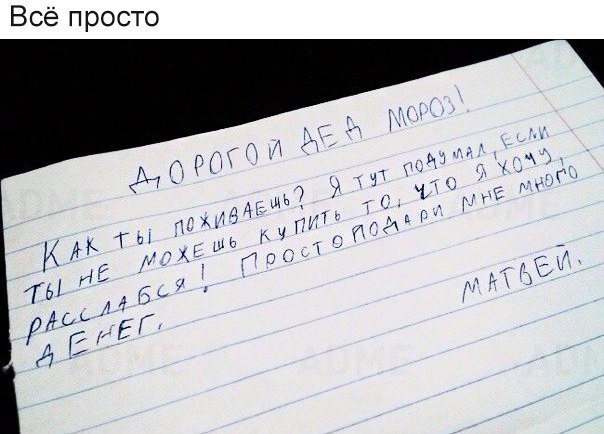 Всё просто
ДОРОГОЙ ДЕД МОРОЗ!
КАК ТЫ ПОЖИВАЕШЬ? Я ТУТ ПОДУМАЛ, ЕСЛИ
ТЫ НЕ МОЖЕШЬ КУПИТЬ ТО, ЧТО Я ХОЧУ,
РАССЛАБСЯ! ПРОСТО ПОДАРИ МНЕ МНОГО
ДЕНЕГ.
МАТВЕЙ.
ADME